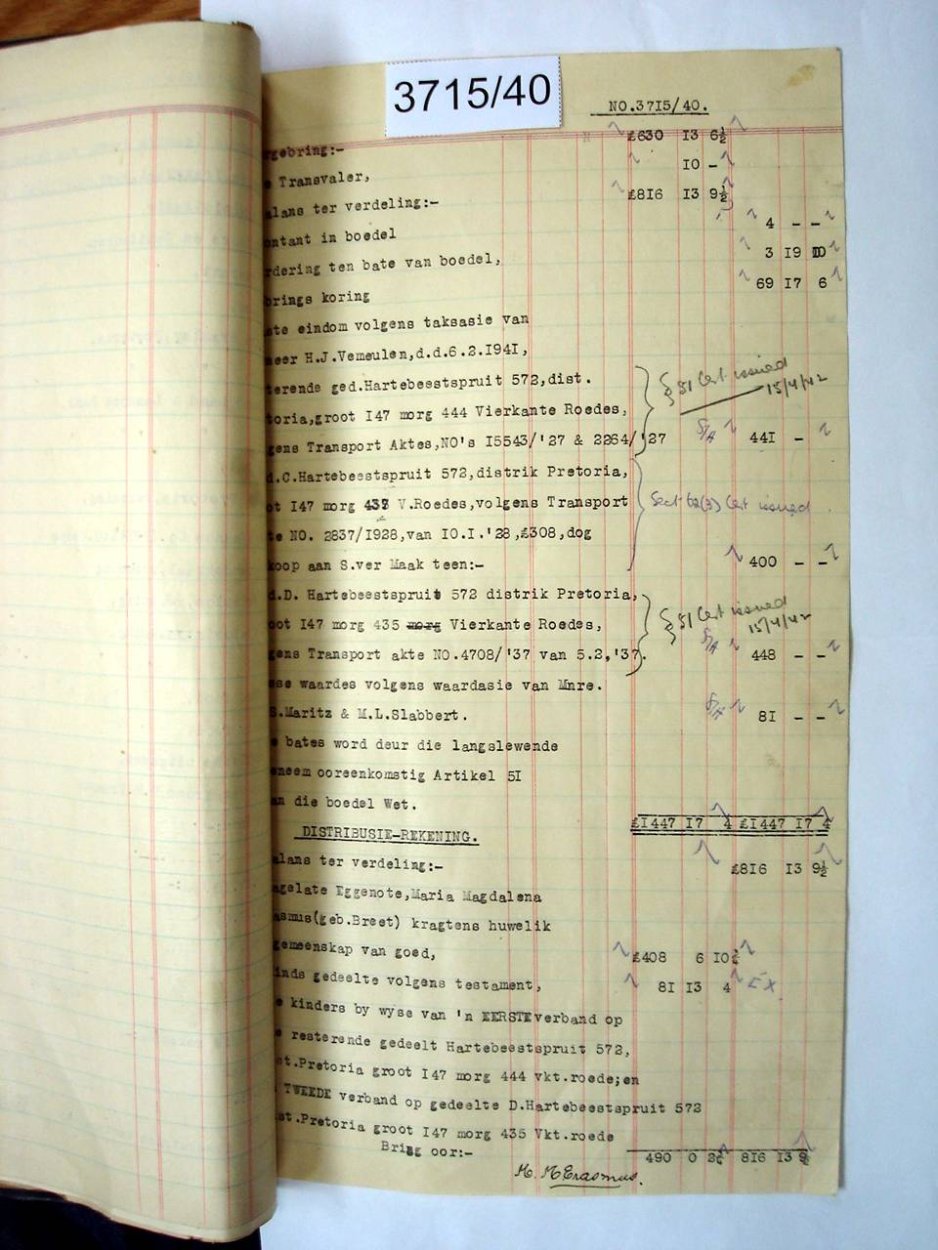 3715/40
NO.3715/40.
rgebring:- £630 13 6½
e Transvaler, 10 -
alans ter verdeling:- £816 13 9½
ontant in boedel 4 - -
rdering ten bate van boedel, 3 19 10
brings koring 69 17 6
ste eindom volgens taksasie van
neer H.J.Vemeulen,d.d.6.2.1941,
terende ged.Hartebeestspruit 572,dist. § 51 Cert issued
toria,groot 147 morg 444 Vierkante Roedes, 15/4/42
gens Transport Aktes,NO's 15543/'27 & 2264/'27 441 -
d.C.Hartebeestspruit 572,distrik Pretoria,
ot 147 morg 437 V.Roedes,volgens Transport Sect 62(3) Cert issued
te NO. 2837/1928,van 10.1.'28,£308,dog
koop aan S.ver Maak teen:- 400 - -
d.D. Hartebeestspruit 572 distrik Pretoria, § 51 Cert issued
oot 147 morg 435 morg Vierkante Roedes, 15/4/42
gens Transport akte NO.4708/'37 van 5.2,'37. 448 - -
sse waardes volgens waardasie van Mnre.
S.Maritz & M.L.Slabbert. 81 - -
e bates word deur die langslewende
eneem ooreenkomstig Artikel 51
an die boedel Wet.
£1447 17 4 £1447 17 4
DISTRIBUSIE-REKENING.
alans ter verdeling:- £816 13 9½
agelate Eggenote,Maria Magdalena
asmus(geb.Breet) kragtens huwelik
gemeenskap van goed, £408 6 10¾
inds gedeelte volgens testament, 81 13 4 Ex.
e kinders by wyse van 'n EERSTE verband op
e resterende gedeelt Hartebeestspruit 572,
st.Pretoria groot 147 morg 444 vkt.roede;en
TWEEDE verband op gedeelte D.Hartebeestspruit 572
st.Pretoria groot 147 morg 435 Vkt.roede
Bring oor:- 490 0 2¾ 816 13 9½
M. M Erasmus.